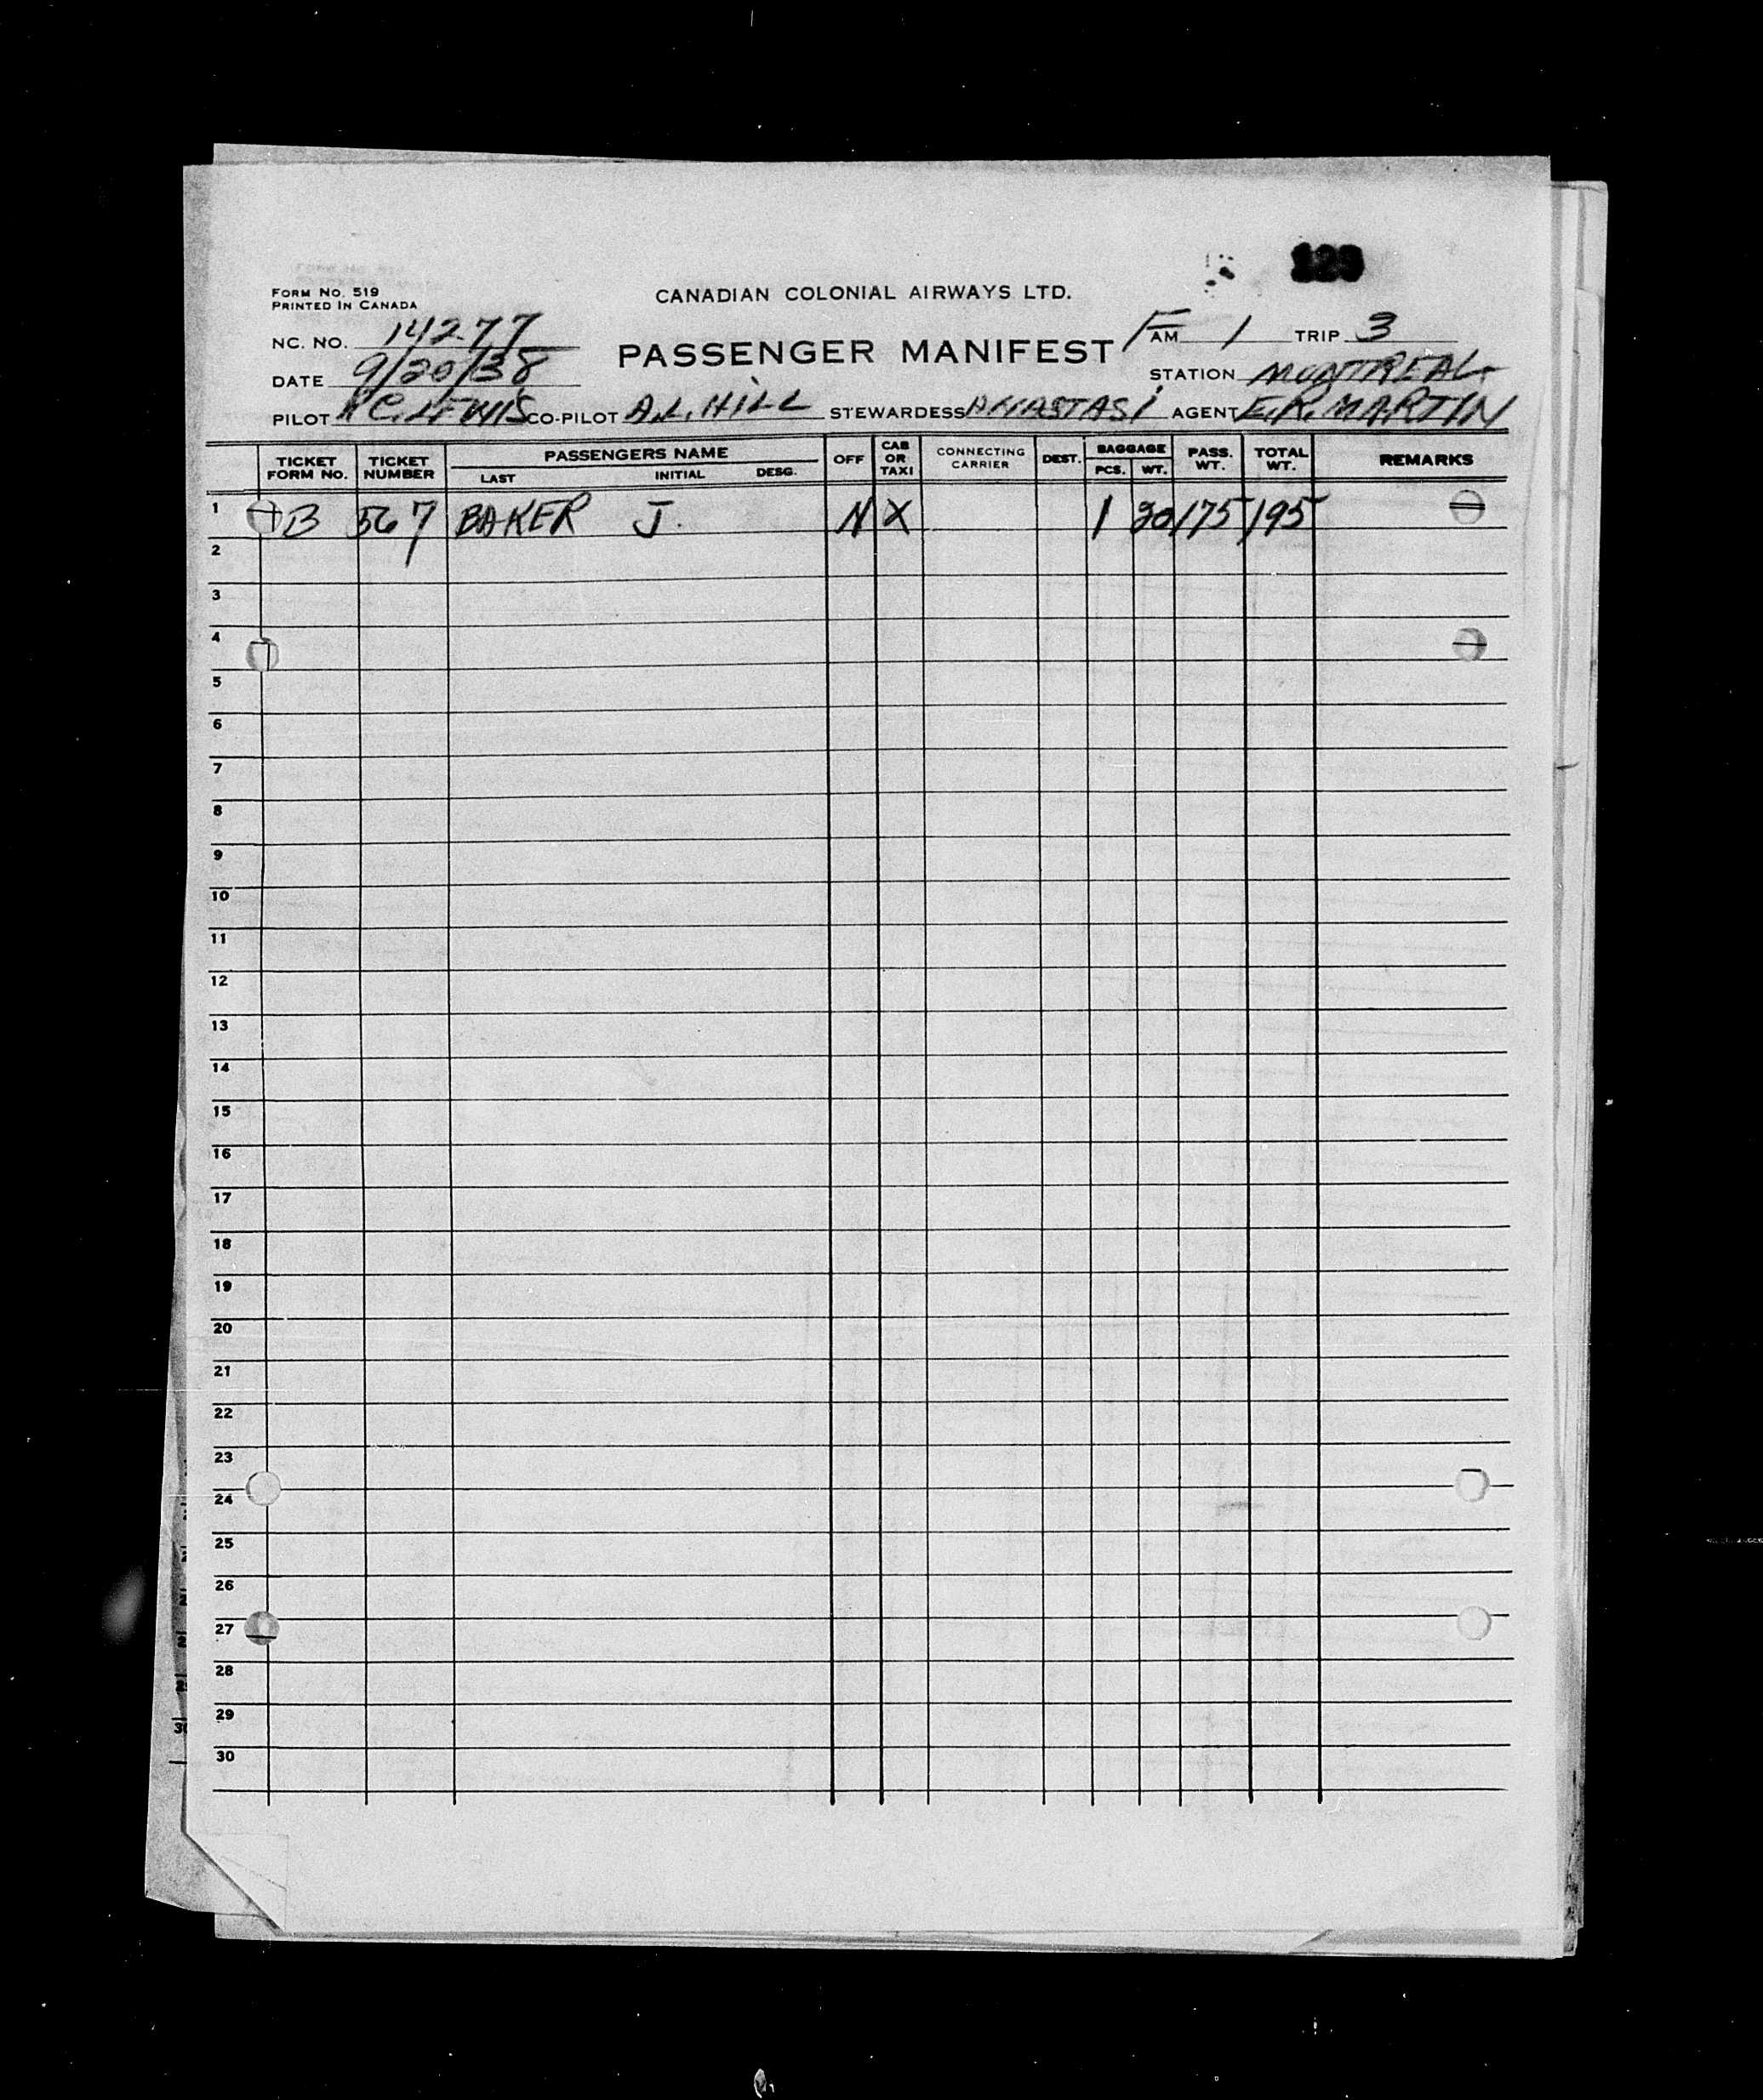 129
FORM NO. 519
PRINTED IN CANADA
CANADIAN COLONIAL AIRWAYS LTD.
NC. NO. 14277
PASSENGER MANIFEST
FAM 1 TRIP 3
DATE 9/20/38
STATION MONTREAL
PILOT C. LEWIS CO-PILOT A.L. HILL STEWARDESS ANASTASI AGENT E.R. MARTIN
TICKET FORM NO. TICKET NUMBER PASSENGERS NAME LAST INITIAL DESG. OFF CAB OR TAXI CONNECTING CARRIER DEST. BAGGAGE PCS. WT. PASS. WT. TOTAL WT. REMARKS
1 B 567 BAKER J. N X 1 20 175 195
2
3
4
5
6
7
8
9
10
11
12
13
14
15
16
17
18
19
20
21
22
23
24
25
26
27
28
29
30